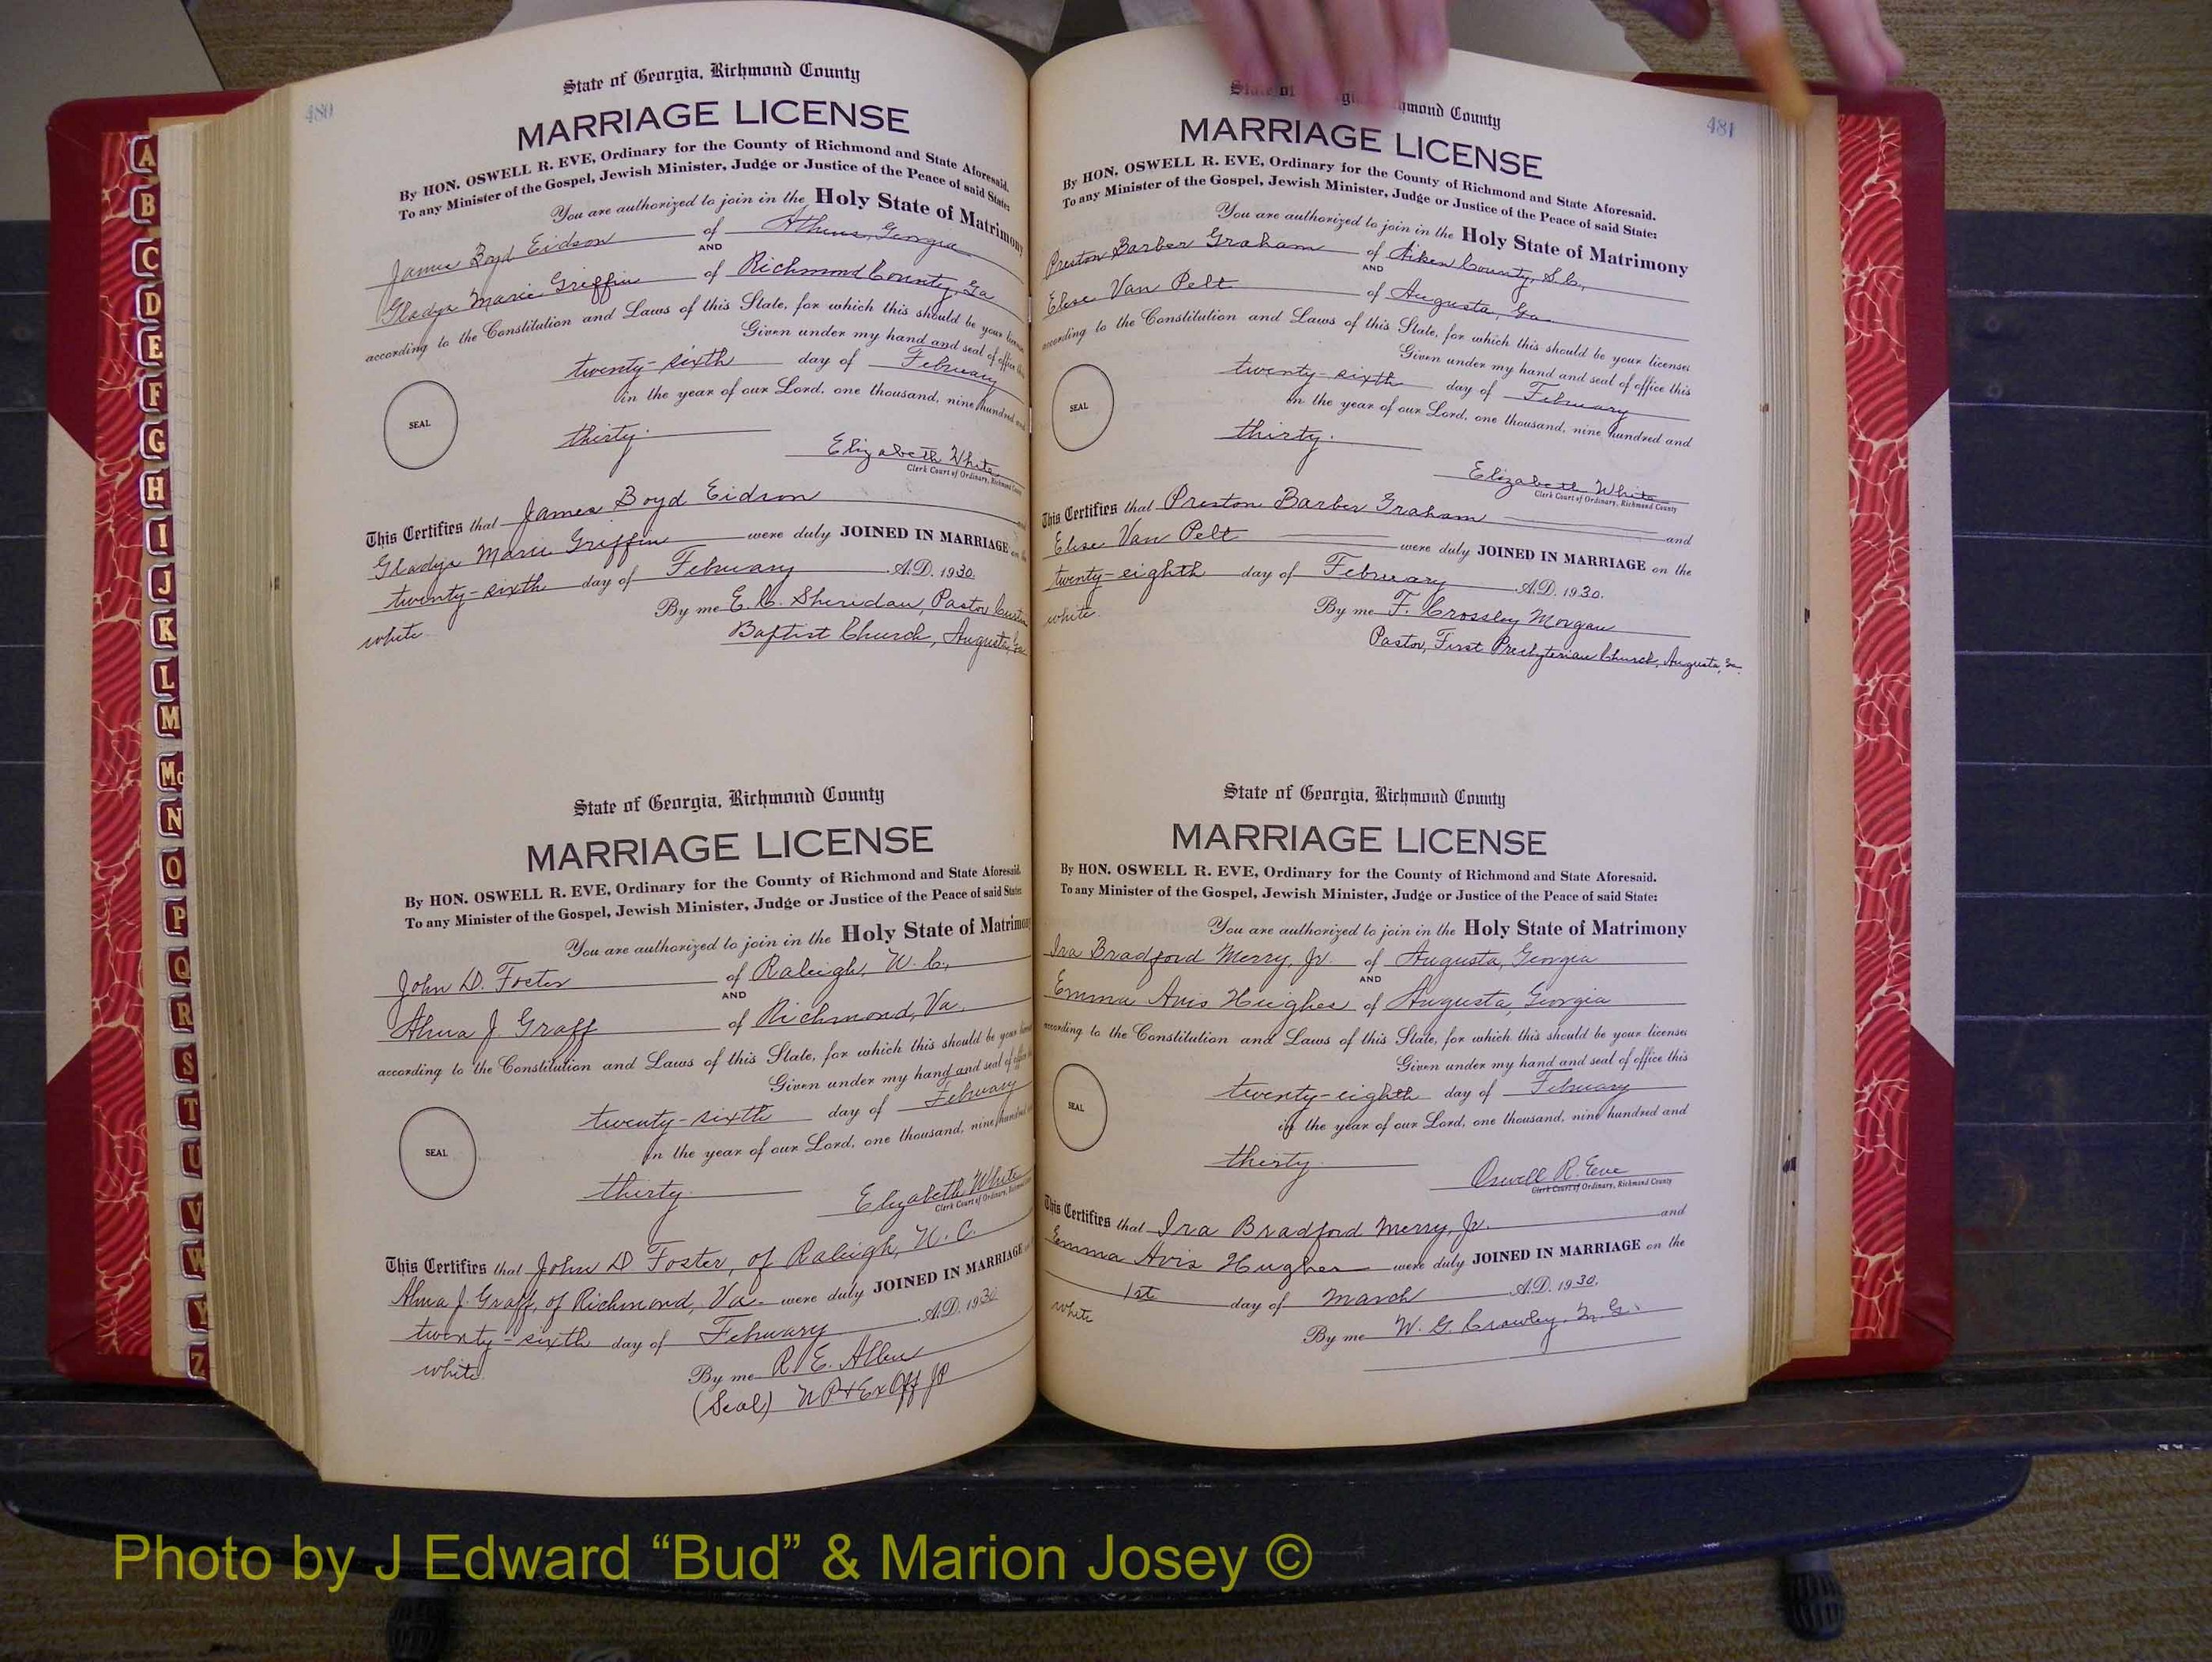 A
B
C
D
E
F
G
H
I
J
K
L
M
Mc
N
O
P
Q
R
S
T
U
V
W
Y
Z
480
State of Georgia, Richmond County
MARRIAGE LICENSE
By HON. OSWELL R. EVE, Ordinary for the County of Richmond and State Aforesaid.
To any Minister of the Gospel, Jewish Minister, Judge or Justice of the Peace of said State:
You are authorized to join in the Holy State of Matrimony
James Boyd Eidson of Athens, Georgia
AND
Gladys Marie Griffin of Richmond County, Ga
according to the Constitution and Laws of this State, for which this should be your license
Given under my hand and seal of office this
twenty-sixth day of February
in the year of our Lord, one thousand, nine hundred and
SEAL
thirty.
Elizabeth White
Clerk Court of Ordinary, Richmond County
This Certifies that James Boyd Eidson and
Gladys Marie Griffin were duly JOINED IN MARRIAGE on the
twenty-sixth day of February A.D. 1930.
By me E. C. Sheridan, Pastor Curtis
white
Baptist Church, Augusta, Ga
State of Georgia, Richmond County
MARRIAGE LICENSE
By HON. OSWELL R. EVE, Ordinary for the County of Richmond and State Aforesaid.
To any Minister of the Gospel, Jewish Minister, Judge or Justice of the Peace of said State:
You are authorized to join in the Holy State of Matrimony
John D. Foster of Raleigh, N. C.,
AND
Alma J. Graff of Richmond, Va.
according to the Constitution and Laws of this State, for which this should be your license
Given under my hand and seal of office this
twenty-sixth day of February
in the year of our Lord, one thousand, nine hundred
SEAL
thirty.
Elizabeth White
Clerk Court of Ordinary, Richmond
This Certifies that John D Foster, of Raleigh, N. C.
Alma J. Graff, of Richmond, Va. were duly JOINED IN MARRIAGE on
twenty-sixth day of February A.D. 1930
white
By me R. E. Allen
(Seal) N P & Ex Off JP
481
State of Georgia, Richmond County
MARRIAGE LICENSE
By HON. OSWELL R. EVE, Ordinary for the County of Richmond and State Aforesaid.
To any Minister of the Gospel, Jewish Minister, Judge or Justice of the Peace of said State:
You are authorized to join in the Holy State of Matrimony
Preston Barber Graham of Aiken County, S.C.,
AND
Elise Van Pelt of Augusta, Ga.
according to the Constitution and Laws of this State, for which this should be your license
Given under my hand and seal of office this
twenty-sixth day of February
in the year of our Lord, one thousand, nine hundred and
SEAL
thirty.
Elizabeth White
Clerk Court of Ordinary, Richmond County
This Certifies that Preston Barber Graham and
Elise Van Pelt were duly JOINED IN MARRIAGE on the
twenty-eighth day of February A.D. 1930.
white
By me F. Crossley Morgan
Pastor, First Presbyterian Church, Augusta, Ga.
State of Georgia, Richmond County
MARRIAGE LICENSE
By HON. OSWELL R. EVE, Ordinary for the County of Richmond and State Aforesaid.
To any Minister of the Gospel, Jewish Minister, Judge or Justice of the Peace of said State:
You are authorized to join in the Holy State of Matrimony
Ira Bradford Merry, Jr. of Augusta, Georgia
AND
Emma Avis Hughes of Augusta, Georgia
according to the Constitution and Laws of this State, for which this should be your license
Given under my hand and seal of office this
twenty-eighth day of February
in the year of our Lord, one thousand, nine hundred and
SEAL
thirty.
Oswell R. Eve
Clerk Court of Ordinary, Richmond County
This Certifies that Ira Bradford Merry, Jr. and
Emma Avis Hughes were duly JOINED IN MARRIAGE on the
1st day of March A.D. 1930.
white
By me W. G. Crawley. M. G.
Photo by J Edward “Bud” & Marion Josey ©